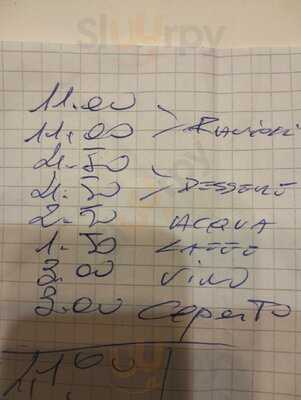 Sluurpy
11.00
11.00 > RAVIOLI
4.50
4.50 > DESSERT
2.50 ACQUA
1.50 CAFFE
3.00 VINO
3.00 COPERTO